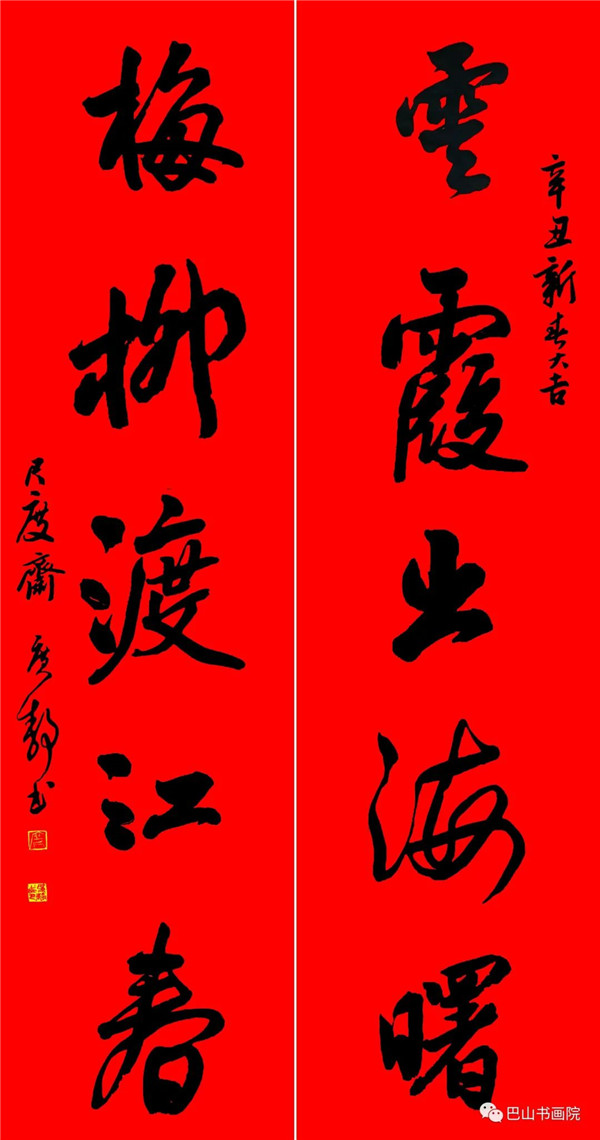 辛丑新春大吉
雲霞出海曙
梅柳渡江春
尺度齋 廣静书
巴山书画院